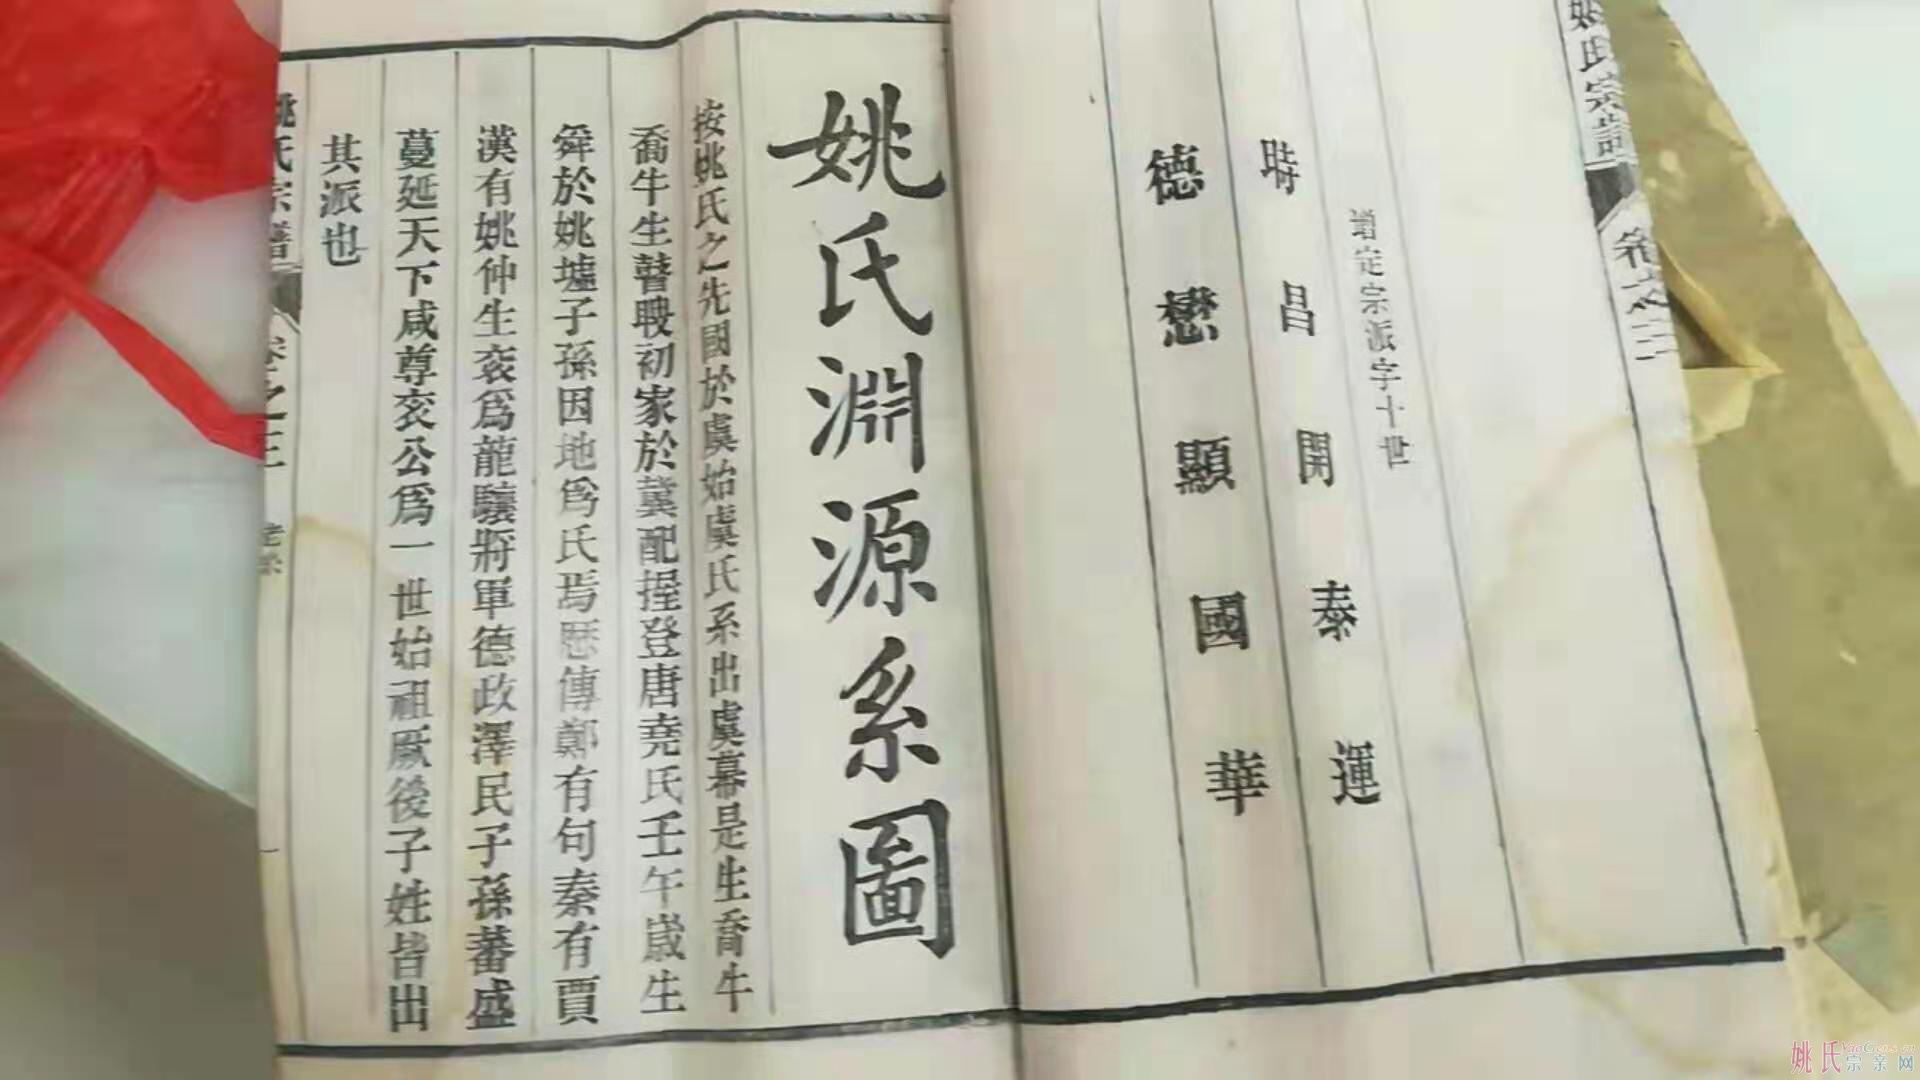 姚氏宗譜
卷之三
增定宗派字十世
時昌開泰運
德懋顯國華
姚氏淵源系圖
按姚氏之先國於虞始虞氏系出虞幕是生喬牛
喬牛生瞽瞍初家於冀配握登唐堯氏壬午歲生
舜於姚墟子孫因地爲氏焉歷傳鄭有句秦有賈
漢有姚仲生衮爲龍驤將軍德政澤民子孫蕃盛
蔓延天下咸尊衮公爲一世始祖厥後子姓皆出
其派也
姚氏宗譜
卷之三
一
姚氏宗亲网
YaoGens.cn